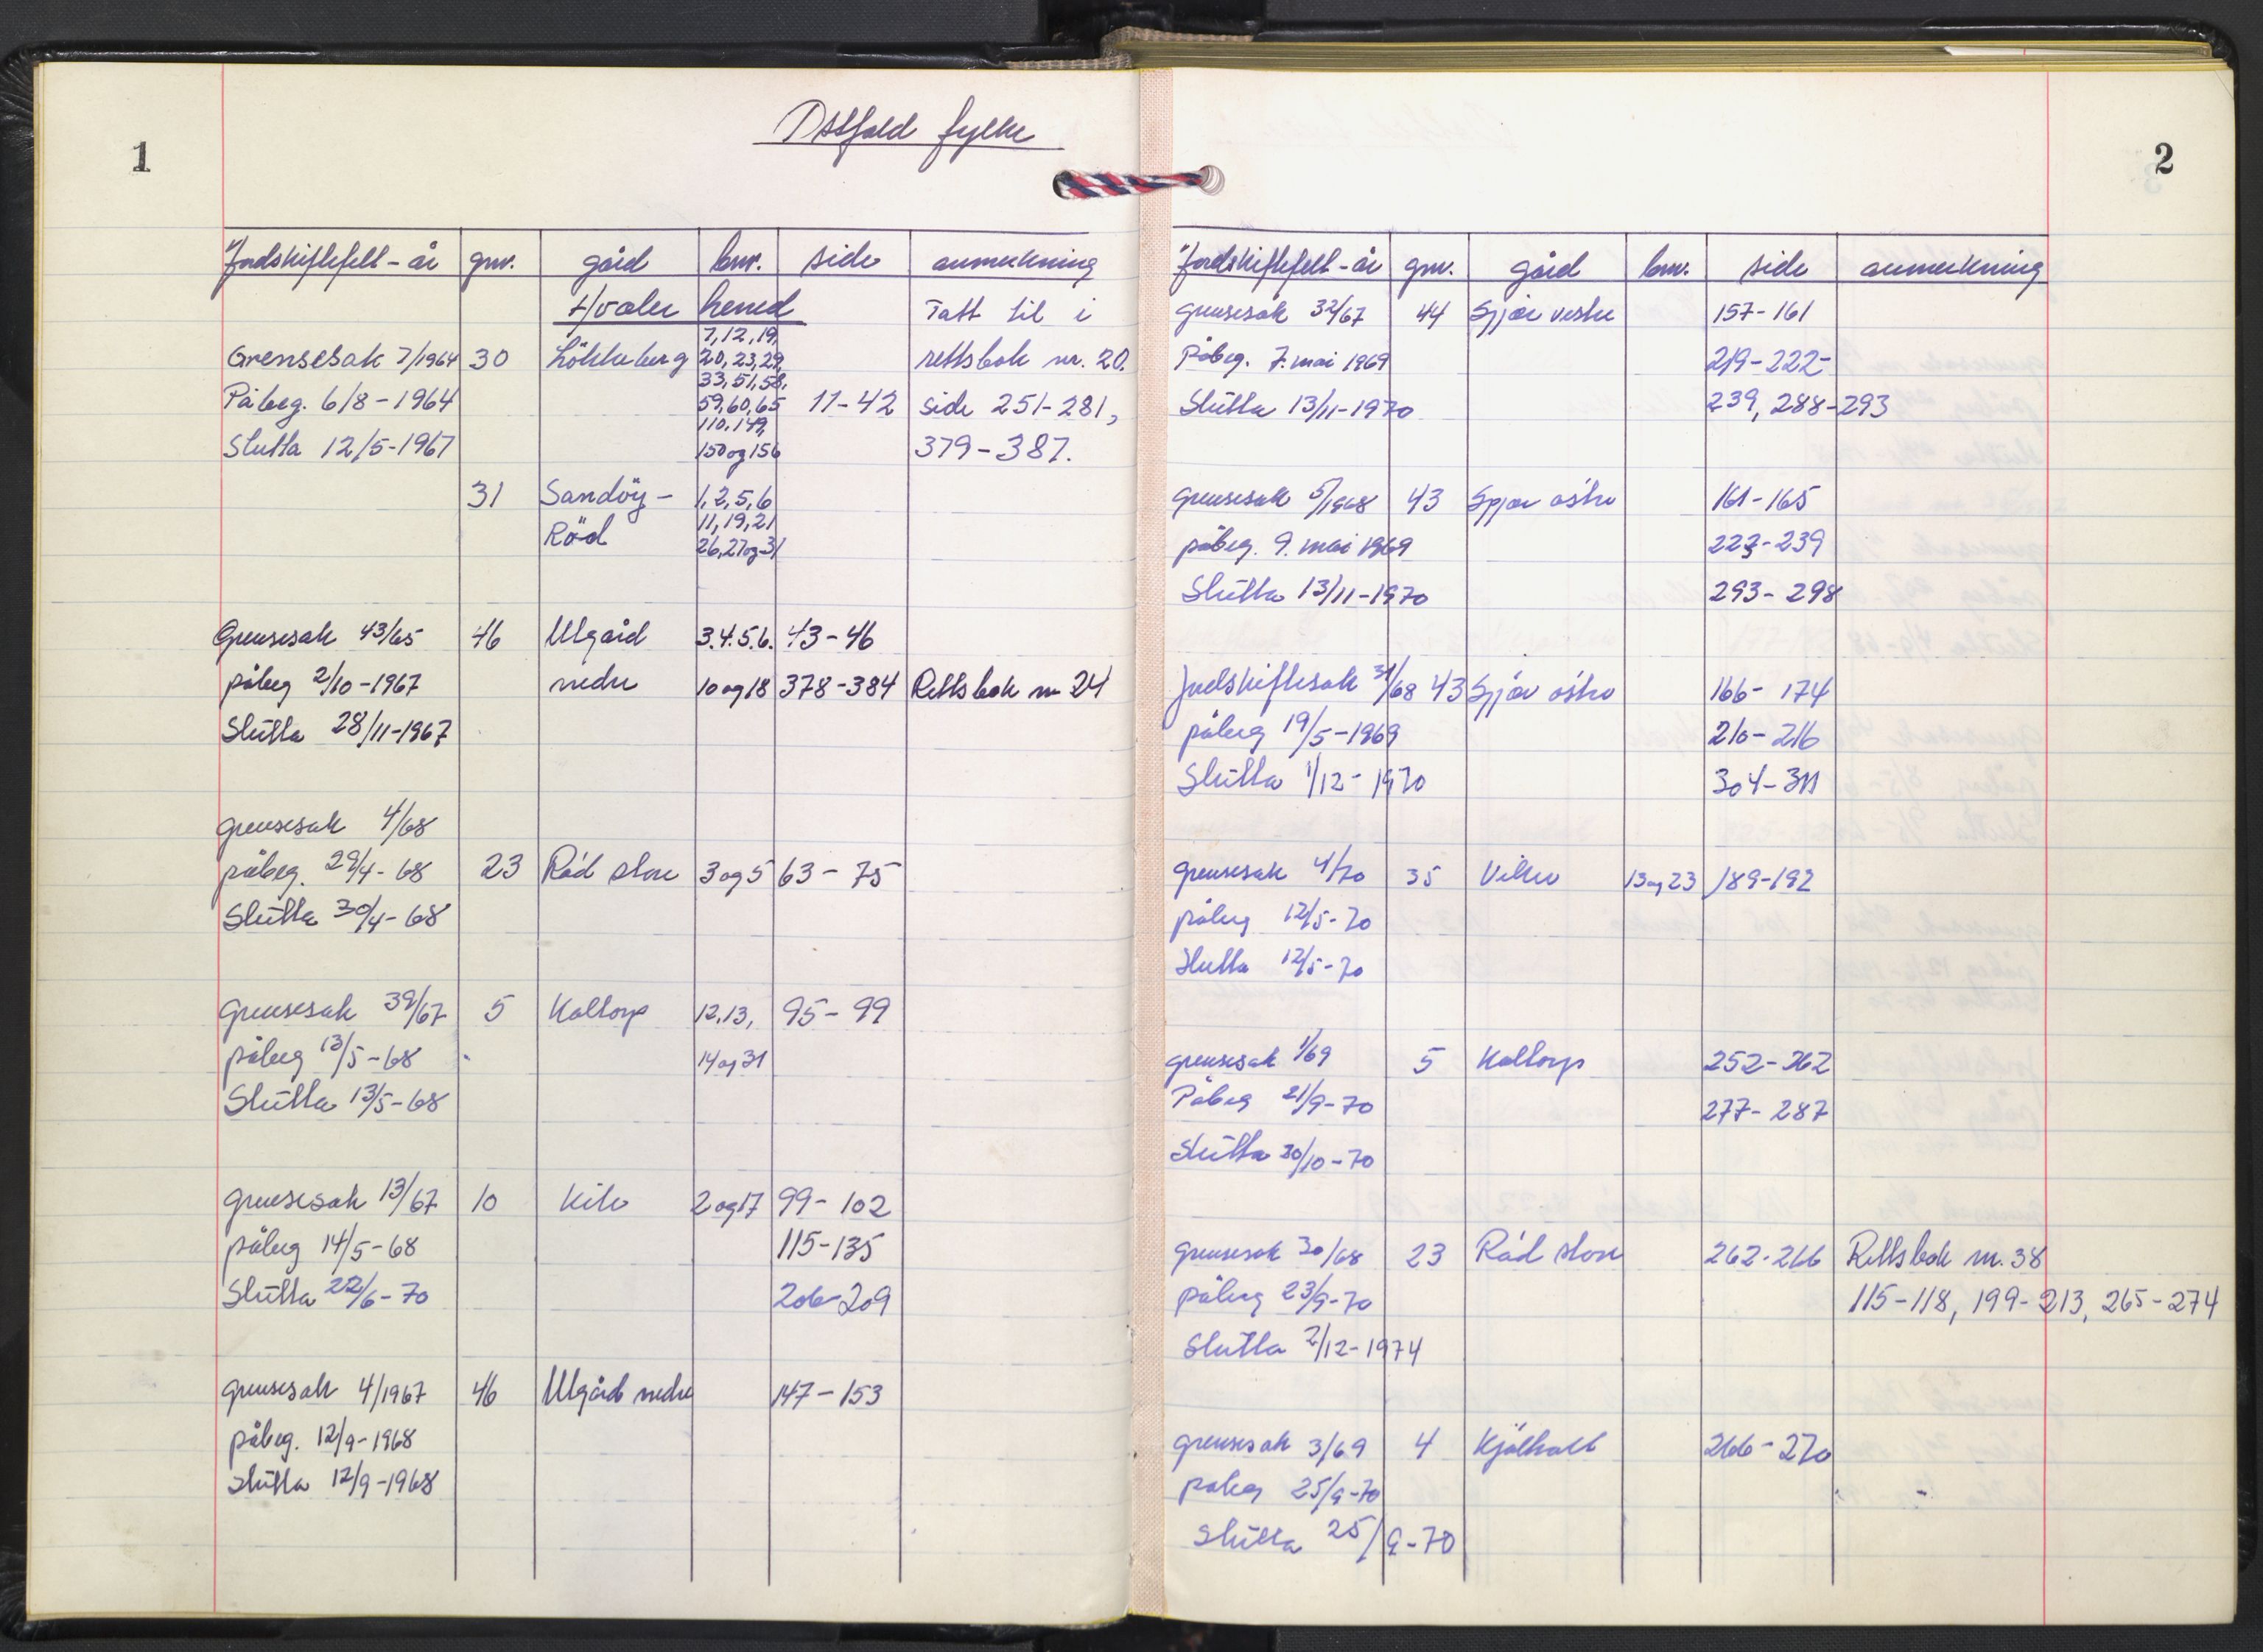 1
Østfold fylke
Jordskiftefelt-år gnr. gård bnr. side anmerkning
Hvaler herred Tatt til i
7, 12, 19,
Grensesak 7/1964 30 Lökkeberg 20, 23, 29, rettsbok nr. 20.
33, 51, 58,
Påbeg. 6/8-1964 59, 60, 65 11-42 side 251-281,
110, 149,
Slutta 12/5-1967 150 og 156 379-387.
31 Sandöy- 1, 2, 5, 6
11, 19, 21
Röd 26, 27 og 31
Grensesak 43/65 46 Ulgård 3.4.5.6. 43-46
påbeg 2/10-1967 nedre 10 og 18 378-384 Rettsbok nr 24
Slutta 28/11-1967
grensesak 4/68
påbeg. 29/4-68 23 Röd store 3 og 5 63-75
Slutta 30/4-68
grensesak 39/67 5 Koltorp 12, 13, 95-99
påbeg 13/5-68 14 og 31
Slutta 13/5-68
grensesak 13/67 10 Kile 2 og 17 99-102
påbeg 14/5-68 115-135
Slutta 22/6-70 206-209
grensesak 4/1967 46 Ulgård nedre 147-153
påbeg. 12/9-1968
Slutta 12/9-1968
2
Jordskiftefelt-år gnr. gård bnr. side anmerkning
grensesak 32/67 44 Spjær vestre 157-161
Påbeg. 7. mai 1969 219-222-
Slutta 13/11-1970 239, 288-293
grensesak 5/1968 43 Spjær østre 161-165
påbeg. 9. mai 1969 223-239
Slutta 13/11-1970 293-298
Jordskiftesak 31/68 43 Spjær østre 166-174
påbeg 19/5-1969 210-216
Slutta 1/12-1970 304-311
grensesak 4/70 35 Viker 13 og 23 189-192
påbeg 12/5-70
Slutta 12/5-70
grensesak 1/69 5 Koltorp 252-262
Påbeg 21/9-70 277-287
Slutta 30/10-70
grensesak 30/68 23 Röd store 262-266 Rettsbok nr. 38
påbeg 23/9-70 115-118, 199-213, 265-274
Slutta 2/12-1974
grensesak 3/69 4 Kjölholt 266-270
påbeg 25/9-70
Slutta 25/9-70